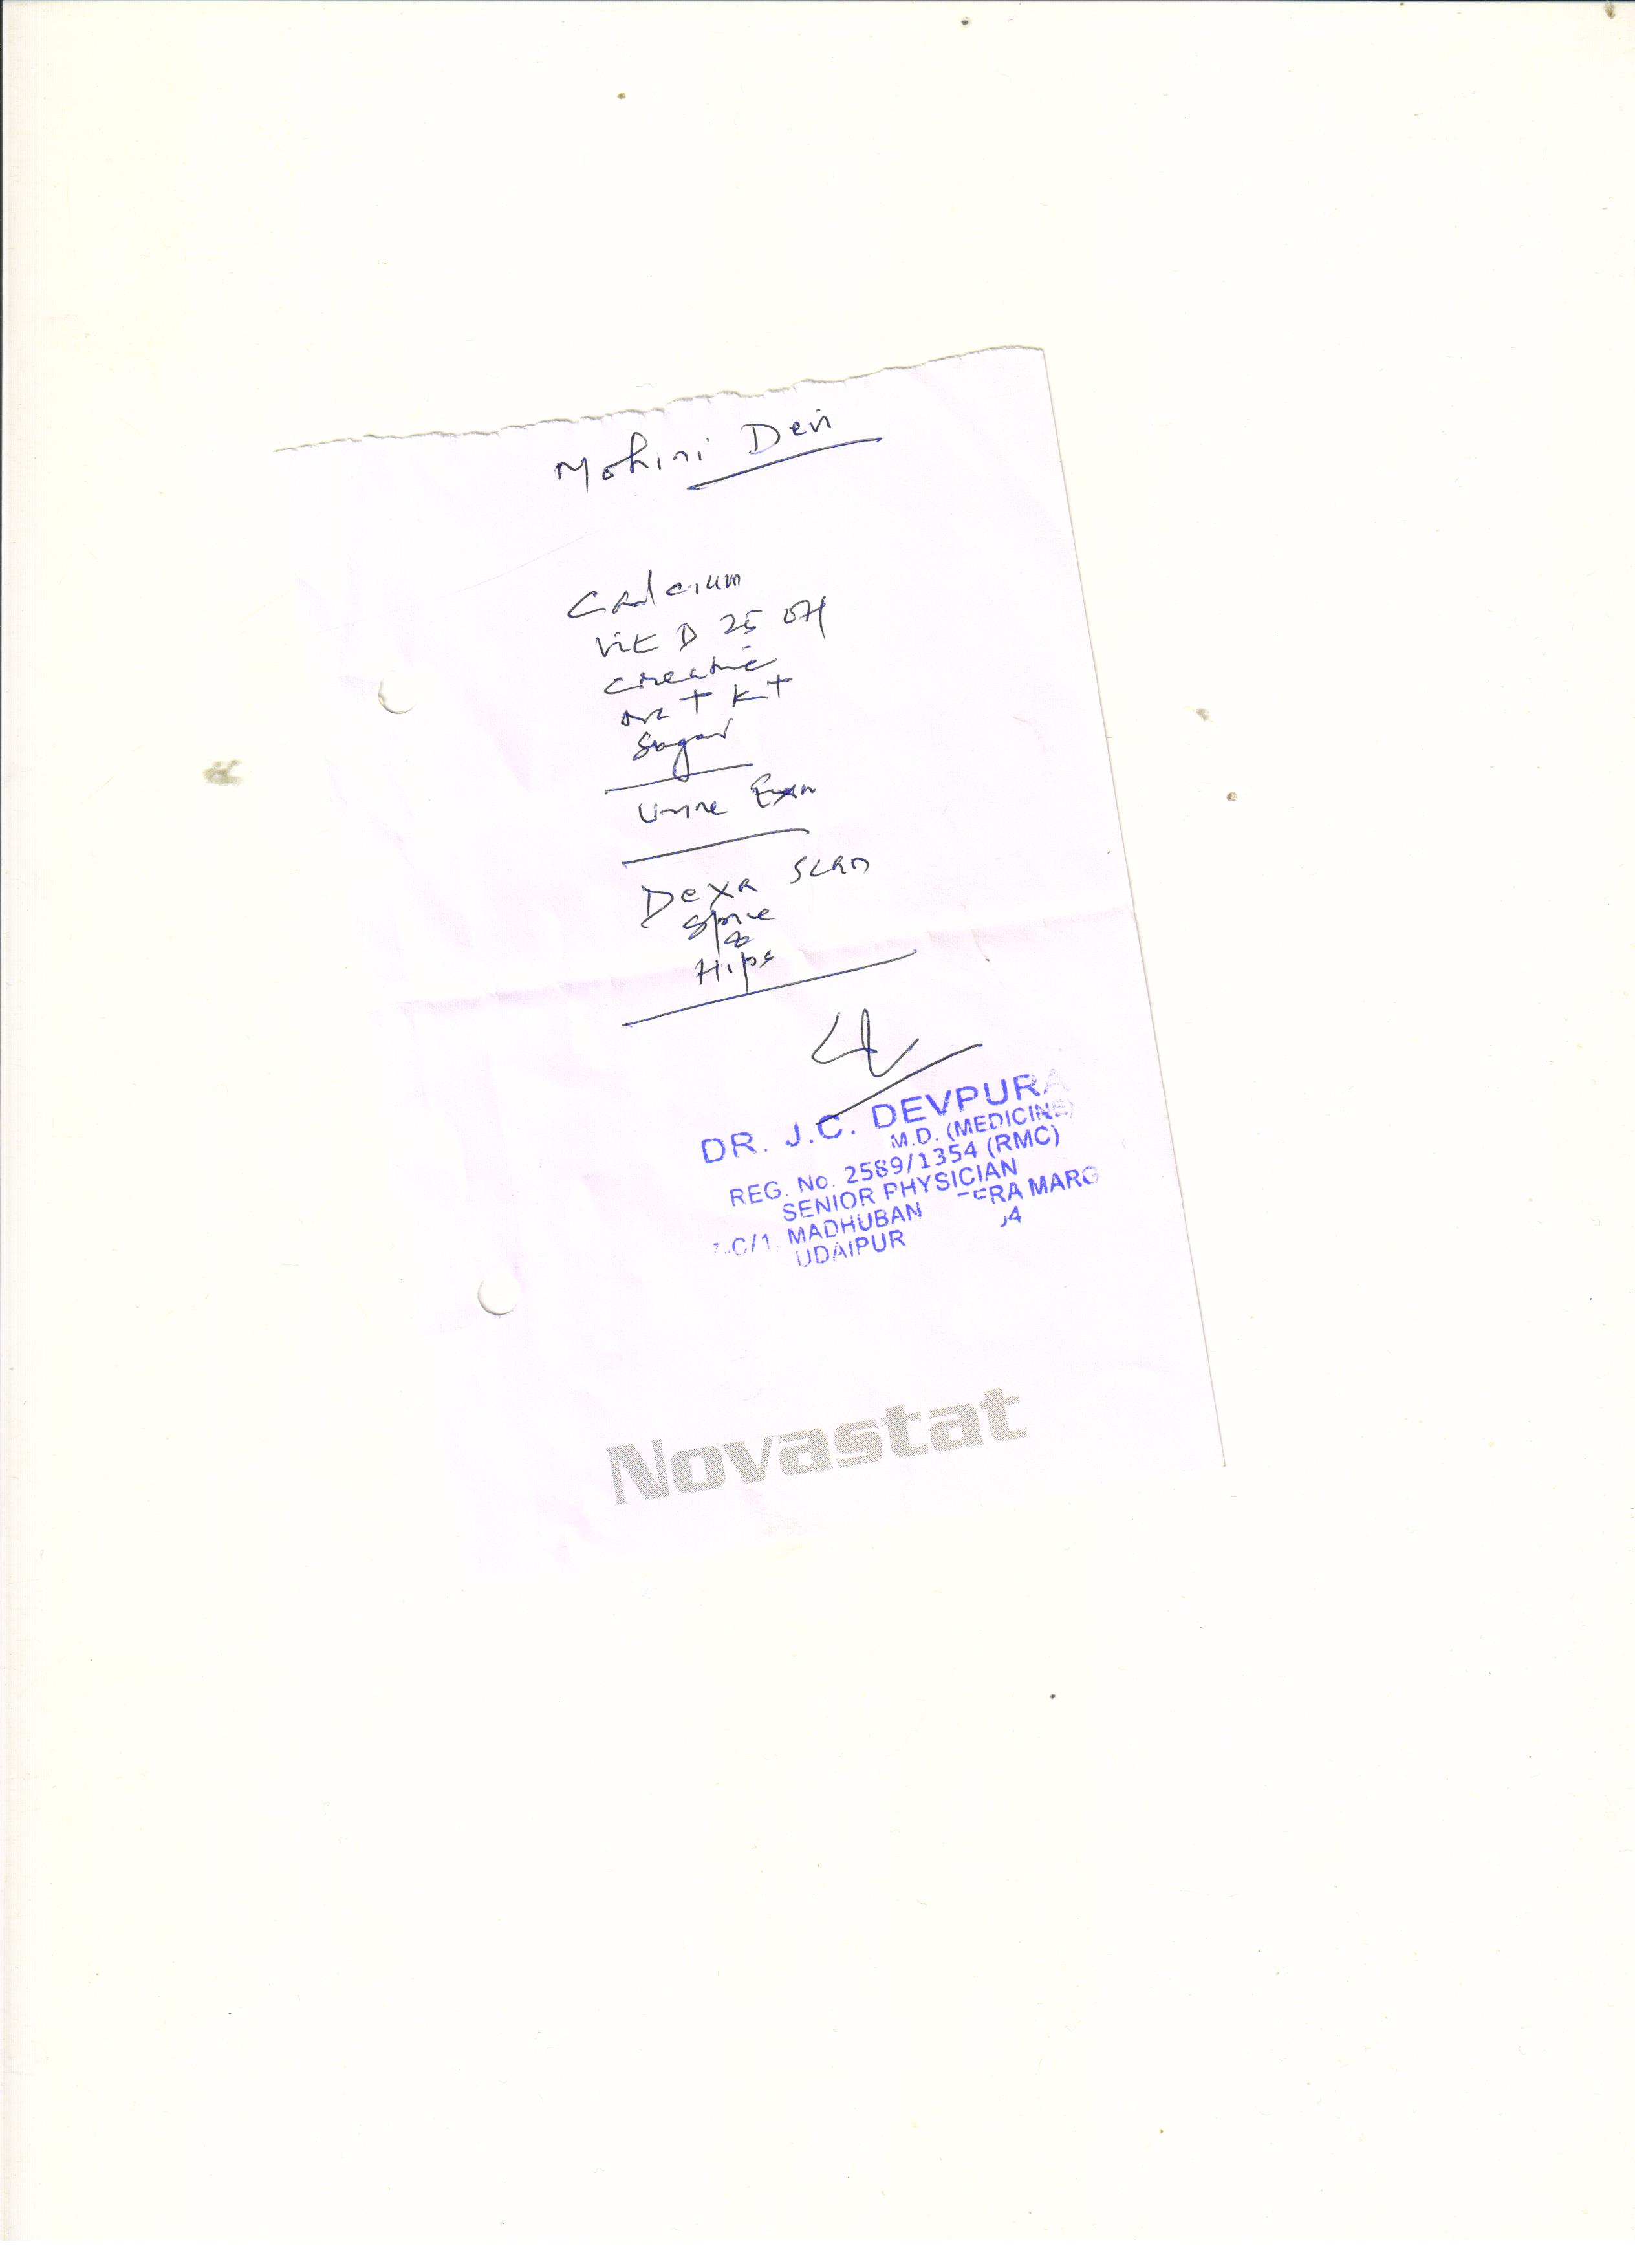 Mohini Devi
Calcium
Vit D 25 OH
Creatine
Na+ K+
Sugar
Urine Exam
Dexa Scan
Spine
&
Hips
DR. J.C. DEVPURA
M.D. (MEDICINE)
REG. No. 2589/1354 (RMC)
SENIOR PHYSICIAN
C/1. MADHUBAN MARG
UDAIPUR
Novastat